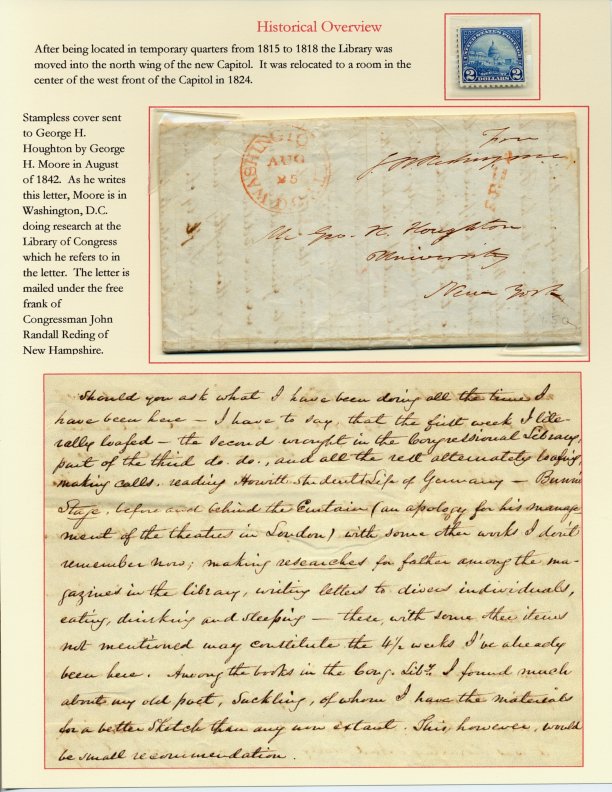 Historical Overview
After being located in temporary quarters from 1815 to 1818 the Library was
moved into the north wing of the new Capitol. It was relocated to a room in the
center of the west front of the Capitol in 1824.
UNITED STATES POSTAGE
2 2
DOLLARS
Stampless cover sent
to George H.
Houghton by George
H. Moore in August
of 1842. As he writes
this letter, Moore is in
Washington, D.C.
doing research at the
Library of Congress
which he refers to in
the letter. The letter is
mailed under the free
frank of
Congressman John
Randall Reding of
New Hampshire.
WASHINGTON
AUG
25
Free
Mr Geo. H. Houghton
University
New York
Should you ask what I have been doing all the time I
have been here – I have to say, that the first week I lite-
rally loafed – the second wrought in the Congressional Library,
part of the third do. do., and all the rest alternately loafing,
making calls, reading Howitt's Student Life of Germany – Bunn's
Stage, before and behind the Curtain (an apology for his manage-
ment of the theatres in London) with some other works I don't
remember now; making researches for father among the ma-
gazines in the library, writing letters to divers individuals,
eating, drinking and sleeping – these, with some other items
not mentioned may constitute the 4½ weeks I've already
been here. Among the books in the Cong. Liby. I found much
about my old poet, Suckling, of whom I have the materials
for a better Sketch than any now extant. This, however, would
be small recommendation.